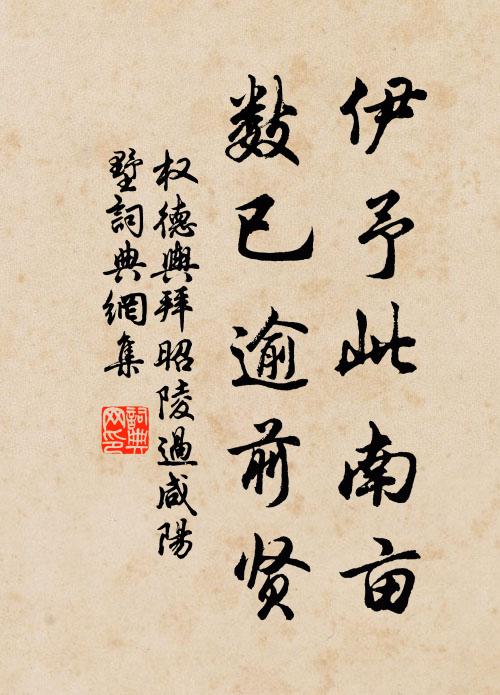 伊予此南亩
数已逾前贤
权德舆拜昭陵過咸陽
墅詞典網集
詞典网印